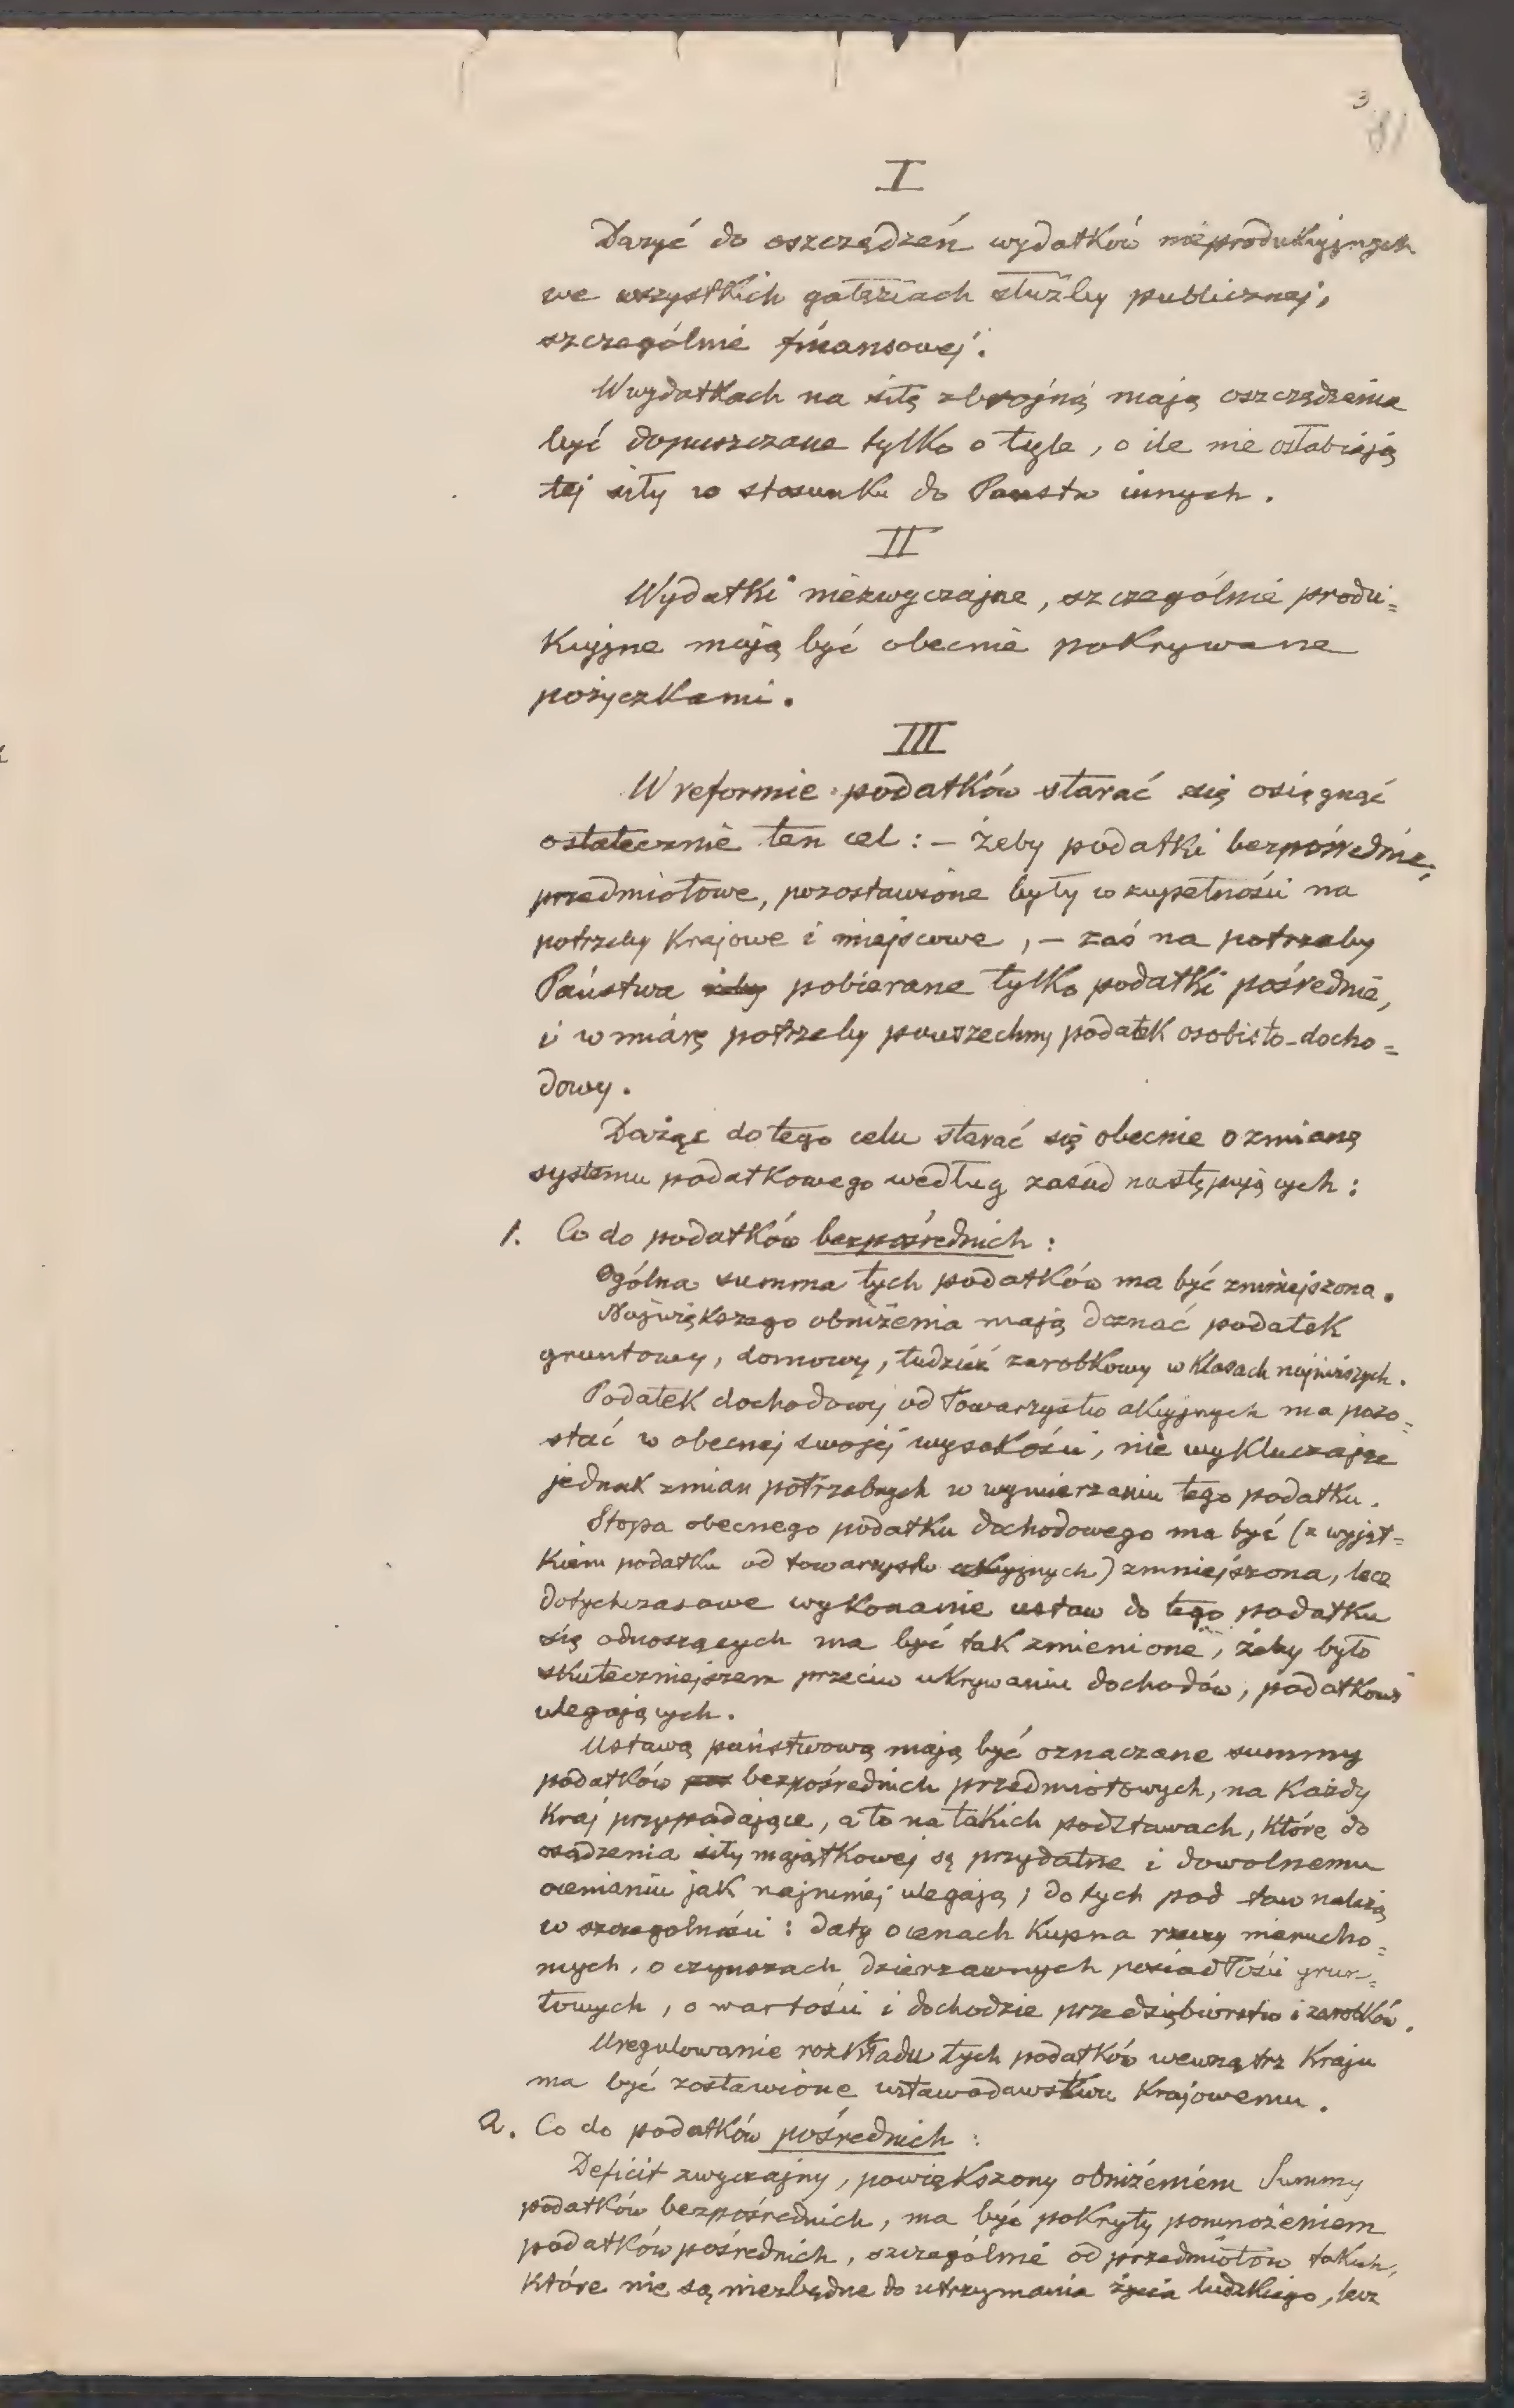 3
81
I
Dążyć do oszczędzeń wydatków nieprodukcyjnych
we wszystkich gałęziach służby publicznej,
szczególnie finansowej.
W wydatkach na siłę zbrojną mają oszczędzenia
być dopuszczane tylko o tyle, o ile nie osłabiają
tej siły w stosunku do Państw innych.
II
Wydatki niezwyczajne, szczególnie produ=
kcyjne mają być obecnie pokrywane
pożyczkami.
III
W reformie podatków starać się osiągnąć
ostatecznie ten cel: – żeby podatki bezpośrednie,
przedmiotowe, pozostawione były w zupełności na
potrzeby krajowe i miejscowe, – zaś na potrzeby
Państwa żeby pobierane tylko podatki pośrednie,
i w miarę potrzeby powszechny podatek osobisto-docho=
dowy.
Dążąc do tego celu starać się obecnie o zmianę
systemu podatkowego według zasad następujących:
1. Co do podatków bezpośrednich:
Ogólna summa tych podatków ma być zmniejszona.
Największego obniżenia mają doznać podatek
gruntowy, domowy, tudzież zarobkowy w klasach najniższych.
Podatek dochodowy od Towarzystw akcyjnych ma pozo=
stać w obecnej swojej wysokości, nie wykluczając
jednak zmian potrzebnych w wymierzaniu tego podatku.
Stopa obecnego podatku dochodowego ma być (z wyjąt=
kiem podatku od towarzystw akcyjnych) zmniejszona, lecz
dotychczasowe wykonanie ustaw do tego podatku
się odnoszących ma być tak zmienione, żeby było
skuteczniejszem przeciw ukrywaniu dochodów, podatkowi
ulegających.
Ustawą państwową mają być oznaczane summy
podatków bezpośrednich przedmiotowych, na każdy
kraj przypadające, a to na takich podstawach, które do
osądzenia siły majątkowej są przydatne i dowolnemu
ocenianiu jak najmniej ulegają; do tych pod taw należą
w szczególności: daty o cenach kupna rzeczy nierucho=
mych, o czynszach dzierżawnych posiadłości grun=
towych, o wartości i dochodzie przedsiębiorstw i zarobków.
Uregulowanie rozkładu tych podatków wewnątrz kraju
ma być zostawione ustawodawstwu krajowemu.
2. Co do podatków pośrednich:
Deficit zwyczajny, powiększony obniżeniem Summy
podatków bezpośrednich, ma być pokryty pomnożeniem
podatków pośrednich, szczególnie od przedmiotów takich,
które nie są niezbędne do utrzymania życia ludzkiego, lecz